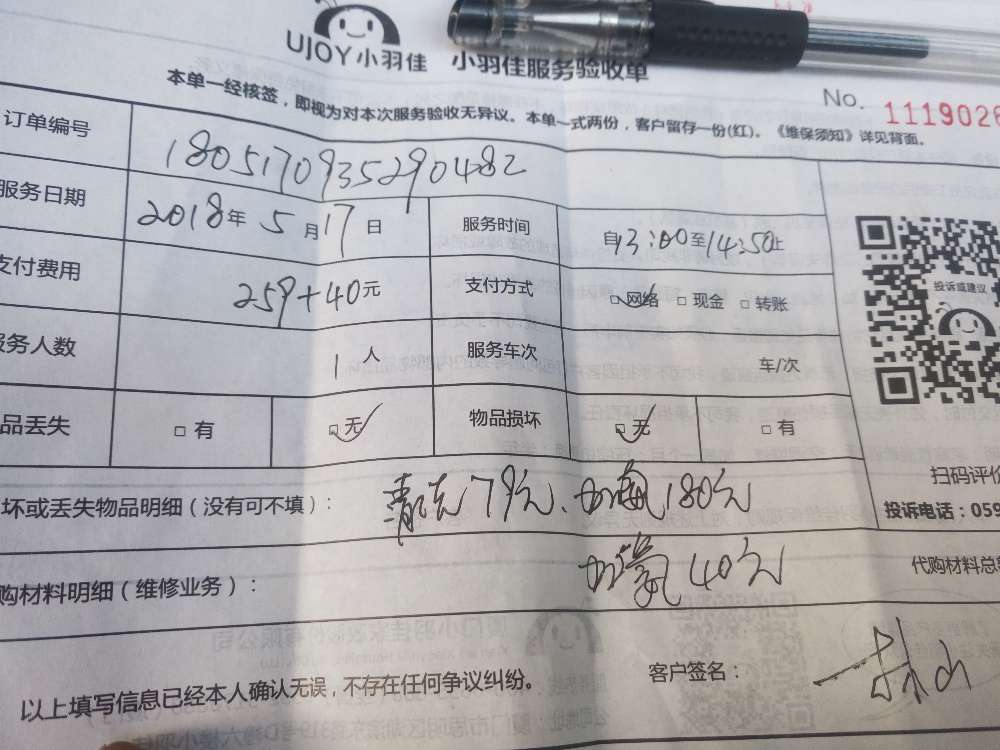 UJOY小羽佳 小羽佳服务验收单
No. 1119026
本单一经核签，即视为对本次服务验收无异议。本单一式两份，客户留存一份(红)。《维保须知》详见背面。
订单编号 18051709352904 82
服务日期 2018年 5月17日 服务时间 自13:00至14:50止
支付费用 259+40元 支付方式 □网络 □现金 □转账
务人数 1人 服务车次 车/次
品丢失 □有 □无 物品损坏 □无 □有
投诉或建议
扫码评价
投诉电话：059
坏或丢失物品明细（没有可不填）： 清洗79元、加氟180元
购材料明细（维修业务）： 40元 代购材料总
以上填写信息已经本人确认无误，不存在任何争议纠纷。 客户签名：